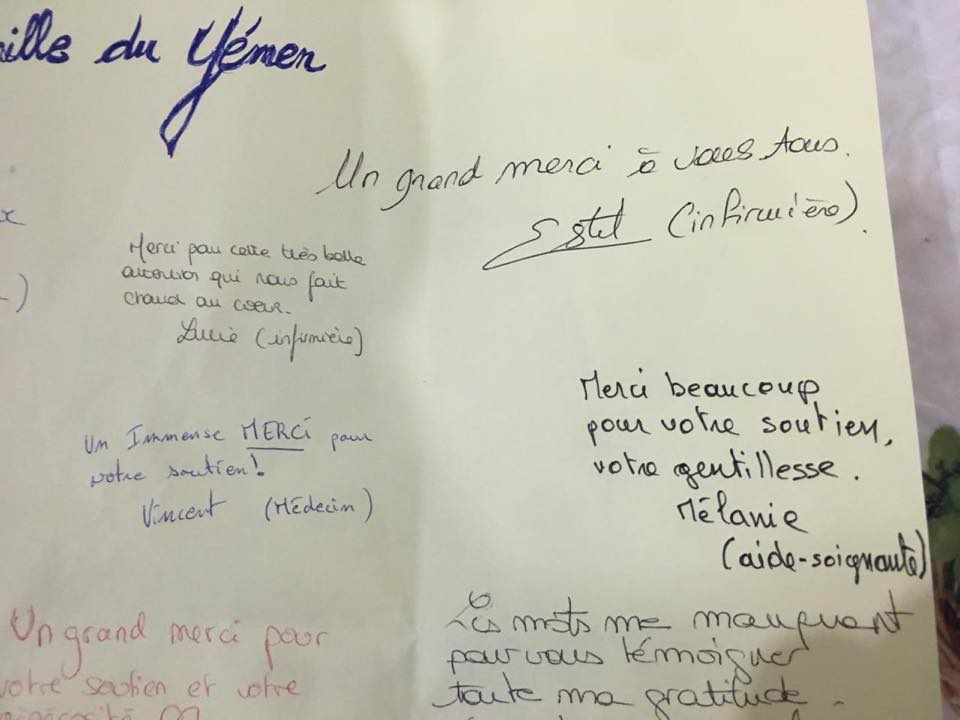 ille du Yémen
Un grand merci à vous tous.
Estel (infirmière).
Merci pour cette très belle
attention qui nous fait
chaud au coeur.
Lucie (infirmière)
Un Immense MERCI pour
votre soutien!
Vincent (Médecin)
Merci beaucoup
pour votre soutien,
votre gentillesse.
Mélanie
(aide-soignante)
Un grand merci pour
votre soutien et votre
Les mots me manquent
pour vous témoigner
toute ma gratitude.